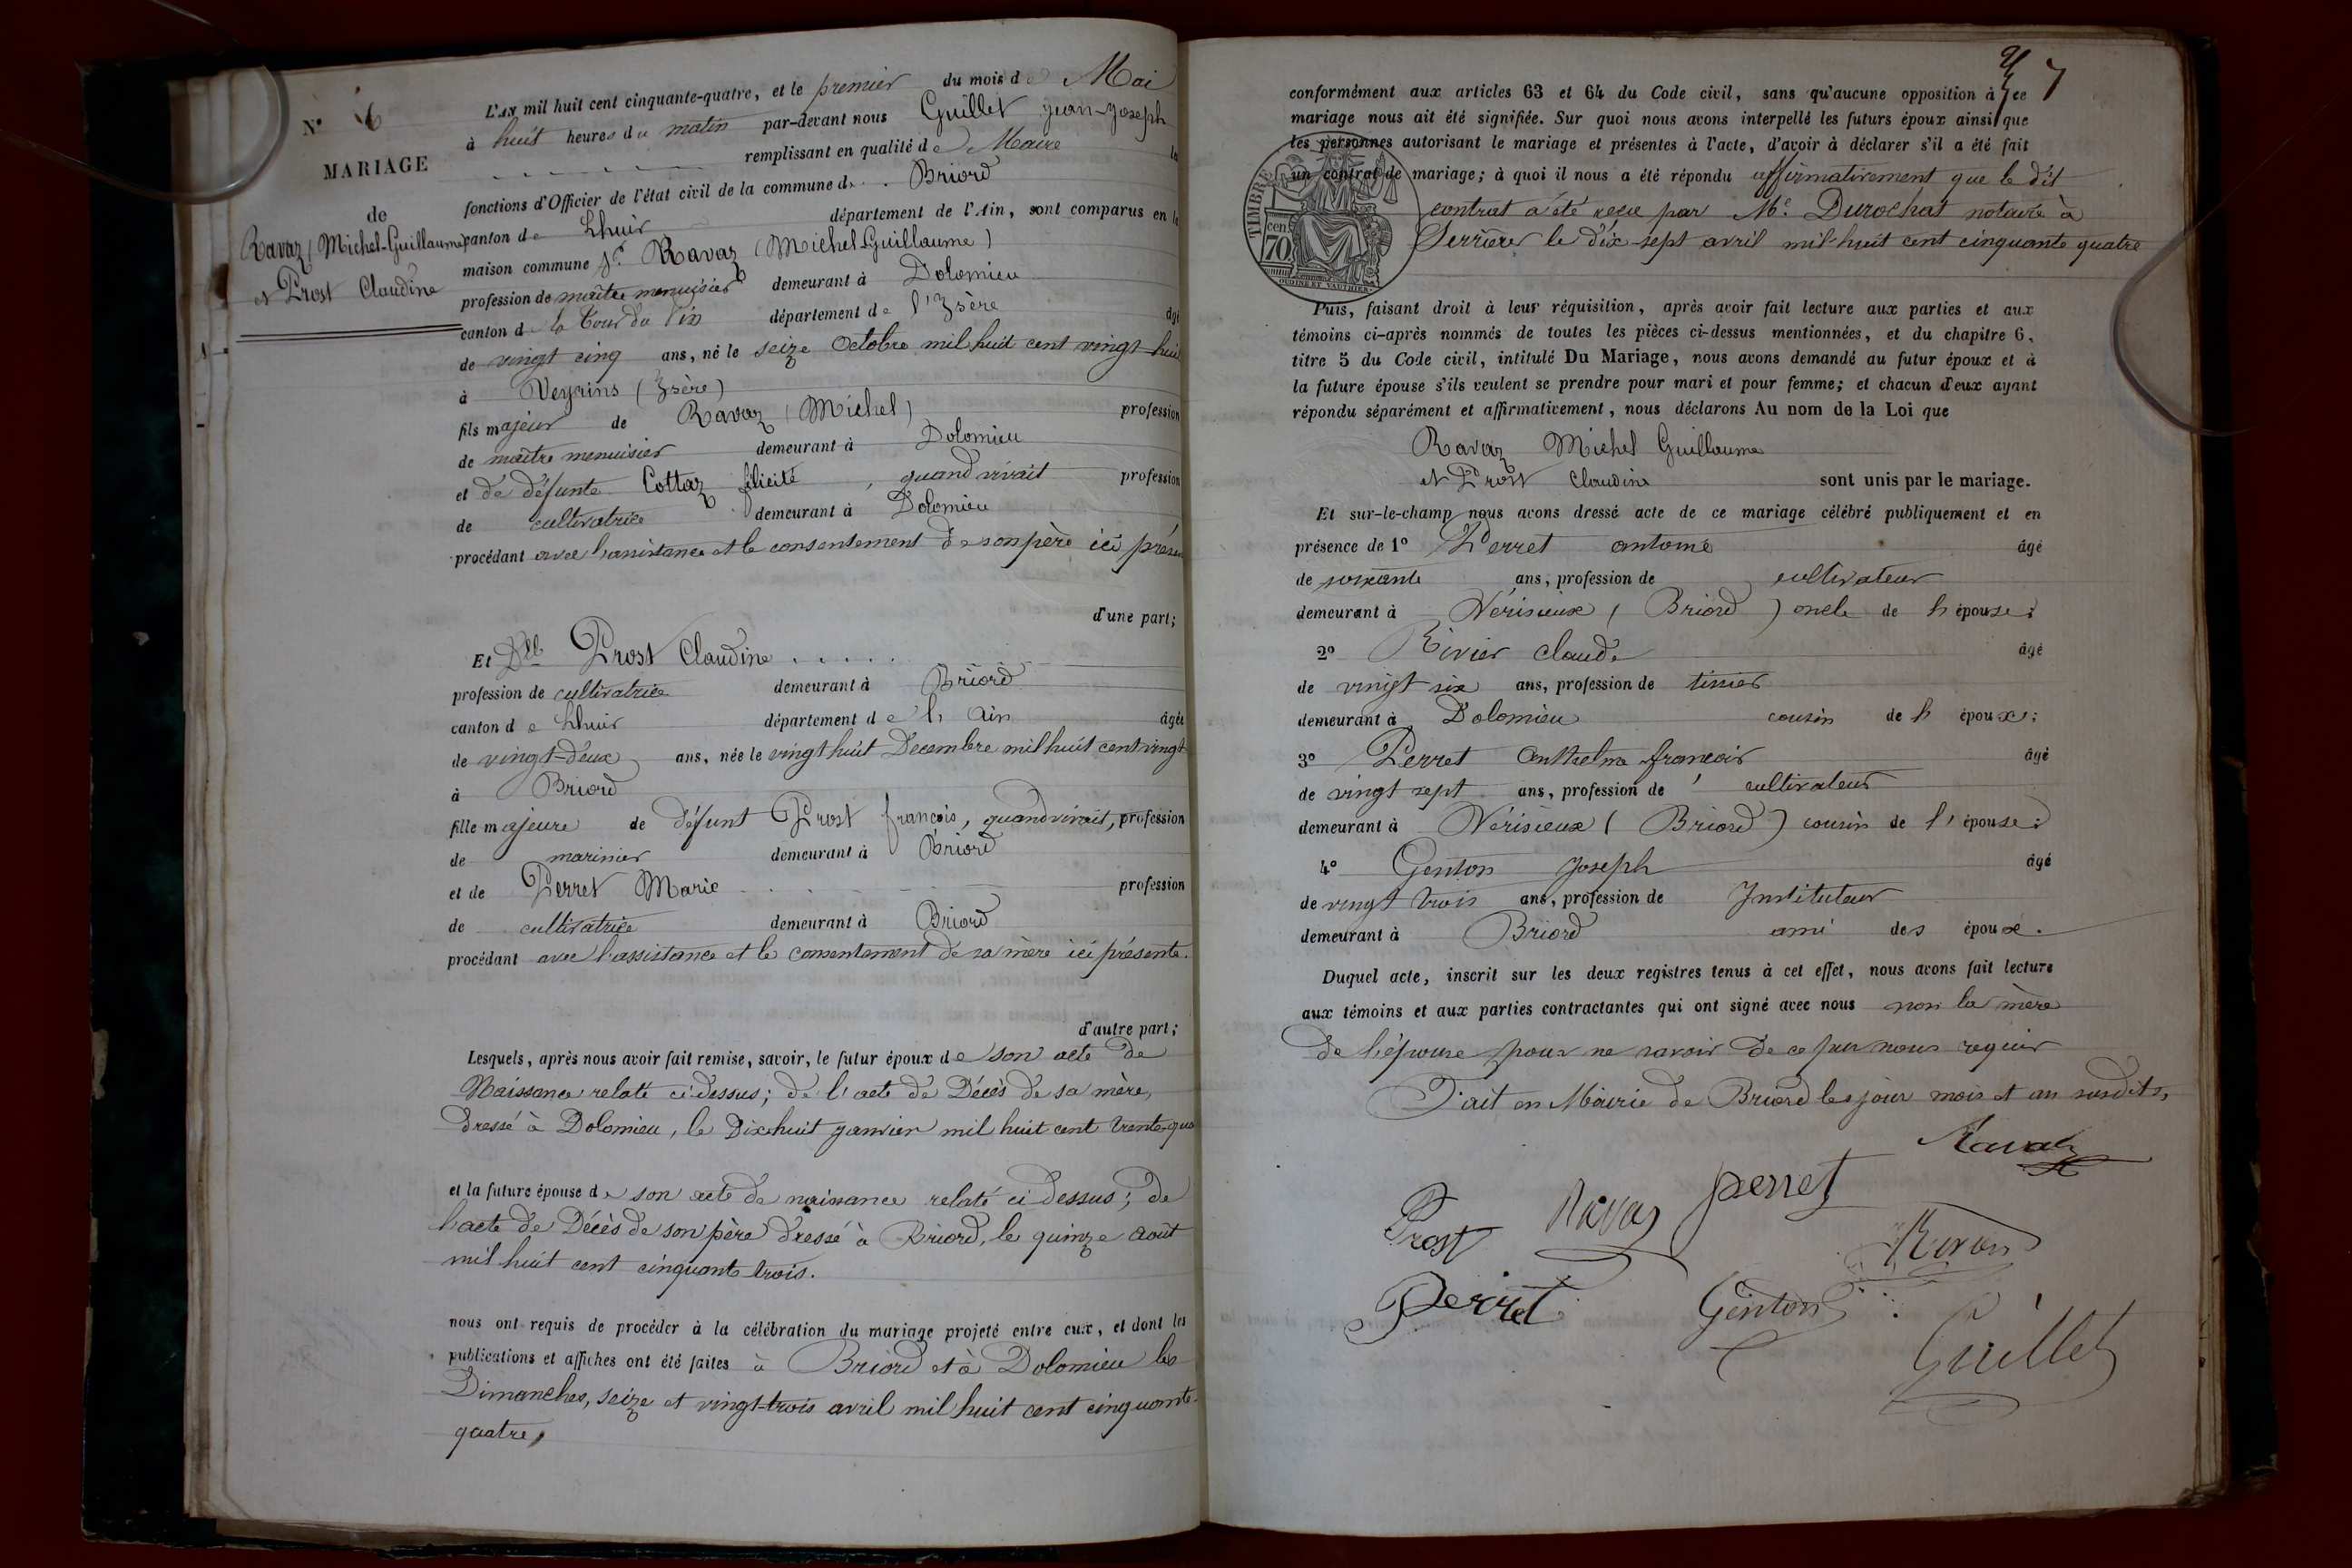 N° 6
MARIAGE
de
Ravaz (Michel-Guillaume)
et Prost Claudine
L'AN mil huit cent cinquante-quatre, et le premier du mois de Mai
à huit heures du matin par-devant nous Guillet Jean-Joseph
remplissant en qualité de Maire les
fonctions d'Officier de l'état civil de la commune de Briord
canton de Lhuis département de l'Ain, sont comparus en la
maison commune Sr. Ravaz (Michel-Guillaume)
profession de maître menuisier demeurant à Dolomieu
canton de la Tour du Pin département de l'Isère âgé
de vingt cinq ans, né le seize Octobre mil huit cent vingt-huit
à Veyrins (Isère)
fils majeur de Ravaz (Michel) profession
de maître menuisier demeurant à Dolomieu
et de défunte Cottaz félicité, quand vivait profession
de cultivatrice demeurant à Dolomieu
procédant avec l'assistance et le consentement de son père ici présen
d'une part;
Et Dlle Prost Claudine . . . . .
profession de cultivatrice demeurant à Briord
canton de Lhuis département de l'Ain âgée
de vingt-deux ans, née le vingt huit Decembre mil huit cent vingt
à Briord
fille majeure de défunt Prost françois, quand vivait, profession
de marinier demeurant à Briord
et de Perret Marie profession
de cultivatrice demeurant à Briord
procédant avec l'assistance et le consentement de sa mère ici présente.
d'autre part;
Lesquels, après nous avoir fait remise, savoir, le futur époux de son acte de
Naissance relaté ci dessus; de l'acte de Décès de sa mère,
dressé à Dolomieu, le Dix-huit janvier mil huit cent trente-qua
et la future épouse de son acte de naissance relaté ci dessus; de
l'acte de Décès de son père dressé à Briord, le quinze août
mil huit cent cinquante trois.
nous ont requis de procéder à la célébration du mariage projeté entre eux, et dont les
publications et affiches ont été faites à Briord et à Dolomieu les
Dimanches, seize et vingt-trois avril mil huit cent cinquante-
quatre,
7
conformément aux articles 63 et 64 du Code civil, sans qu'aucune opposition à ce
mariage nous ait été signifiée. Sur quoi nous avons interpellé les futurs époux ainsi que
les personnes autorisant le mariage et présentes à l'acte, d'avoir à déclarer s'il a été fait
un contrat de mariage; à quoi il nous a été répondu affirmativement que le dit
contrat a été reçu par Me. Durochat notaire à
Serrières le dix-sept avril mil-huit cent cinquante quatre
TIMBRE
cen
70
OUDINÉ ET VAUTHIER
Puis, faisant droit à leur réquisition, après avoir fait lecture aux parties et aux
témoins ci-après nommés de toutes les pièces ci-dessus mentionnées, et du chapitre 6,
titre 5 du Code civil, intitulé Du Mariage, nous avons demandé au futur époux et à
la future épouse s'ils veulent se prendre pour mari et pour femme; et chacun d'eux ayant
répondu séparément et affirmativement, nous déclarons Au nom de la Loi que
Ravaz Michel Guillaume
et Prost Claudine sont unis par le mariage.
Et sur-le-champ nous avons dressé acte de ce mariage célébré publiquement et en
présence de 1° Perret antoine âgé
de soixante ans, profession de cultivateur
demeurant à Vérisieux (Briord) oncle de l'épouse;
2° Rivier Claude âgé
de vingt six ans, profession de tissier
demeurant à Dolomieu cousin de l'époux;
3° Perret Anthelme françois âgé
de vingt sept ans, profession de cultivateur
demeurant à Vérisieux (Briord) cousin de l'épouse;
4° Genton Joseph âgé
de vingt trois ans, profession de Instituteur
demeurant à Briord ami des époux.
Duquel acte, inscrit sur les deux registres tenus à cet effet, nous avons fait lecture
aux témoins et aux parties contractantes qui ont signé avec nous non la mère
de l'épouse pour ne savoir de ce par nous requise
Fait en Mairie de Briord les jour mois et an susdits,
Ravaz
Prost Ravaz perret
Perret Genton
Guillet